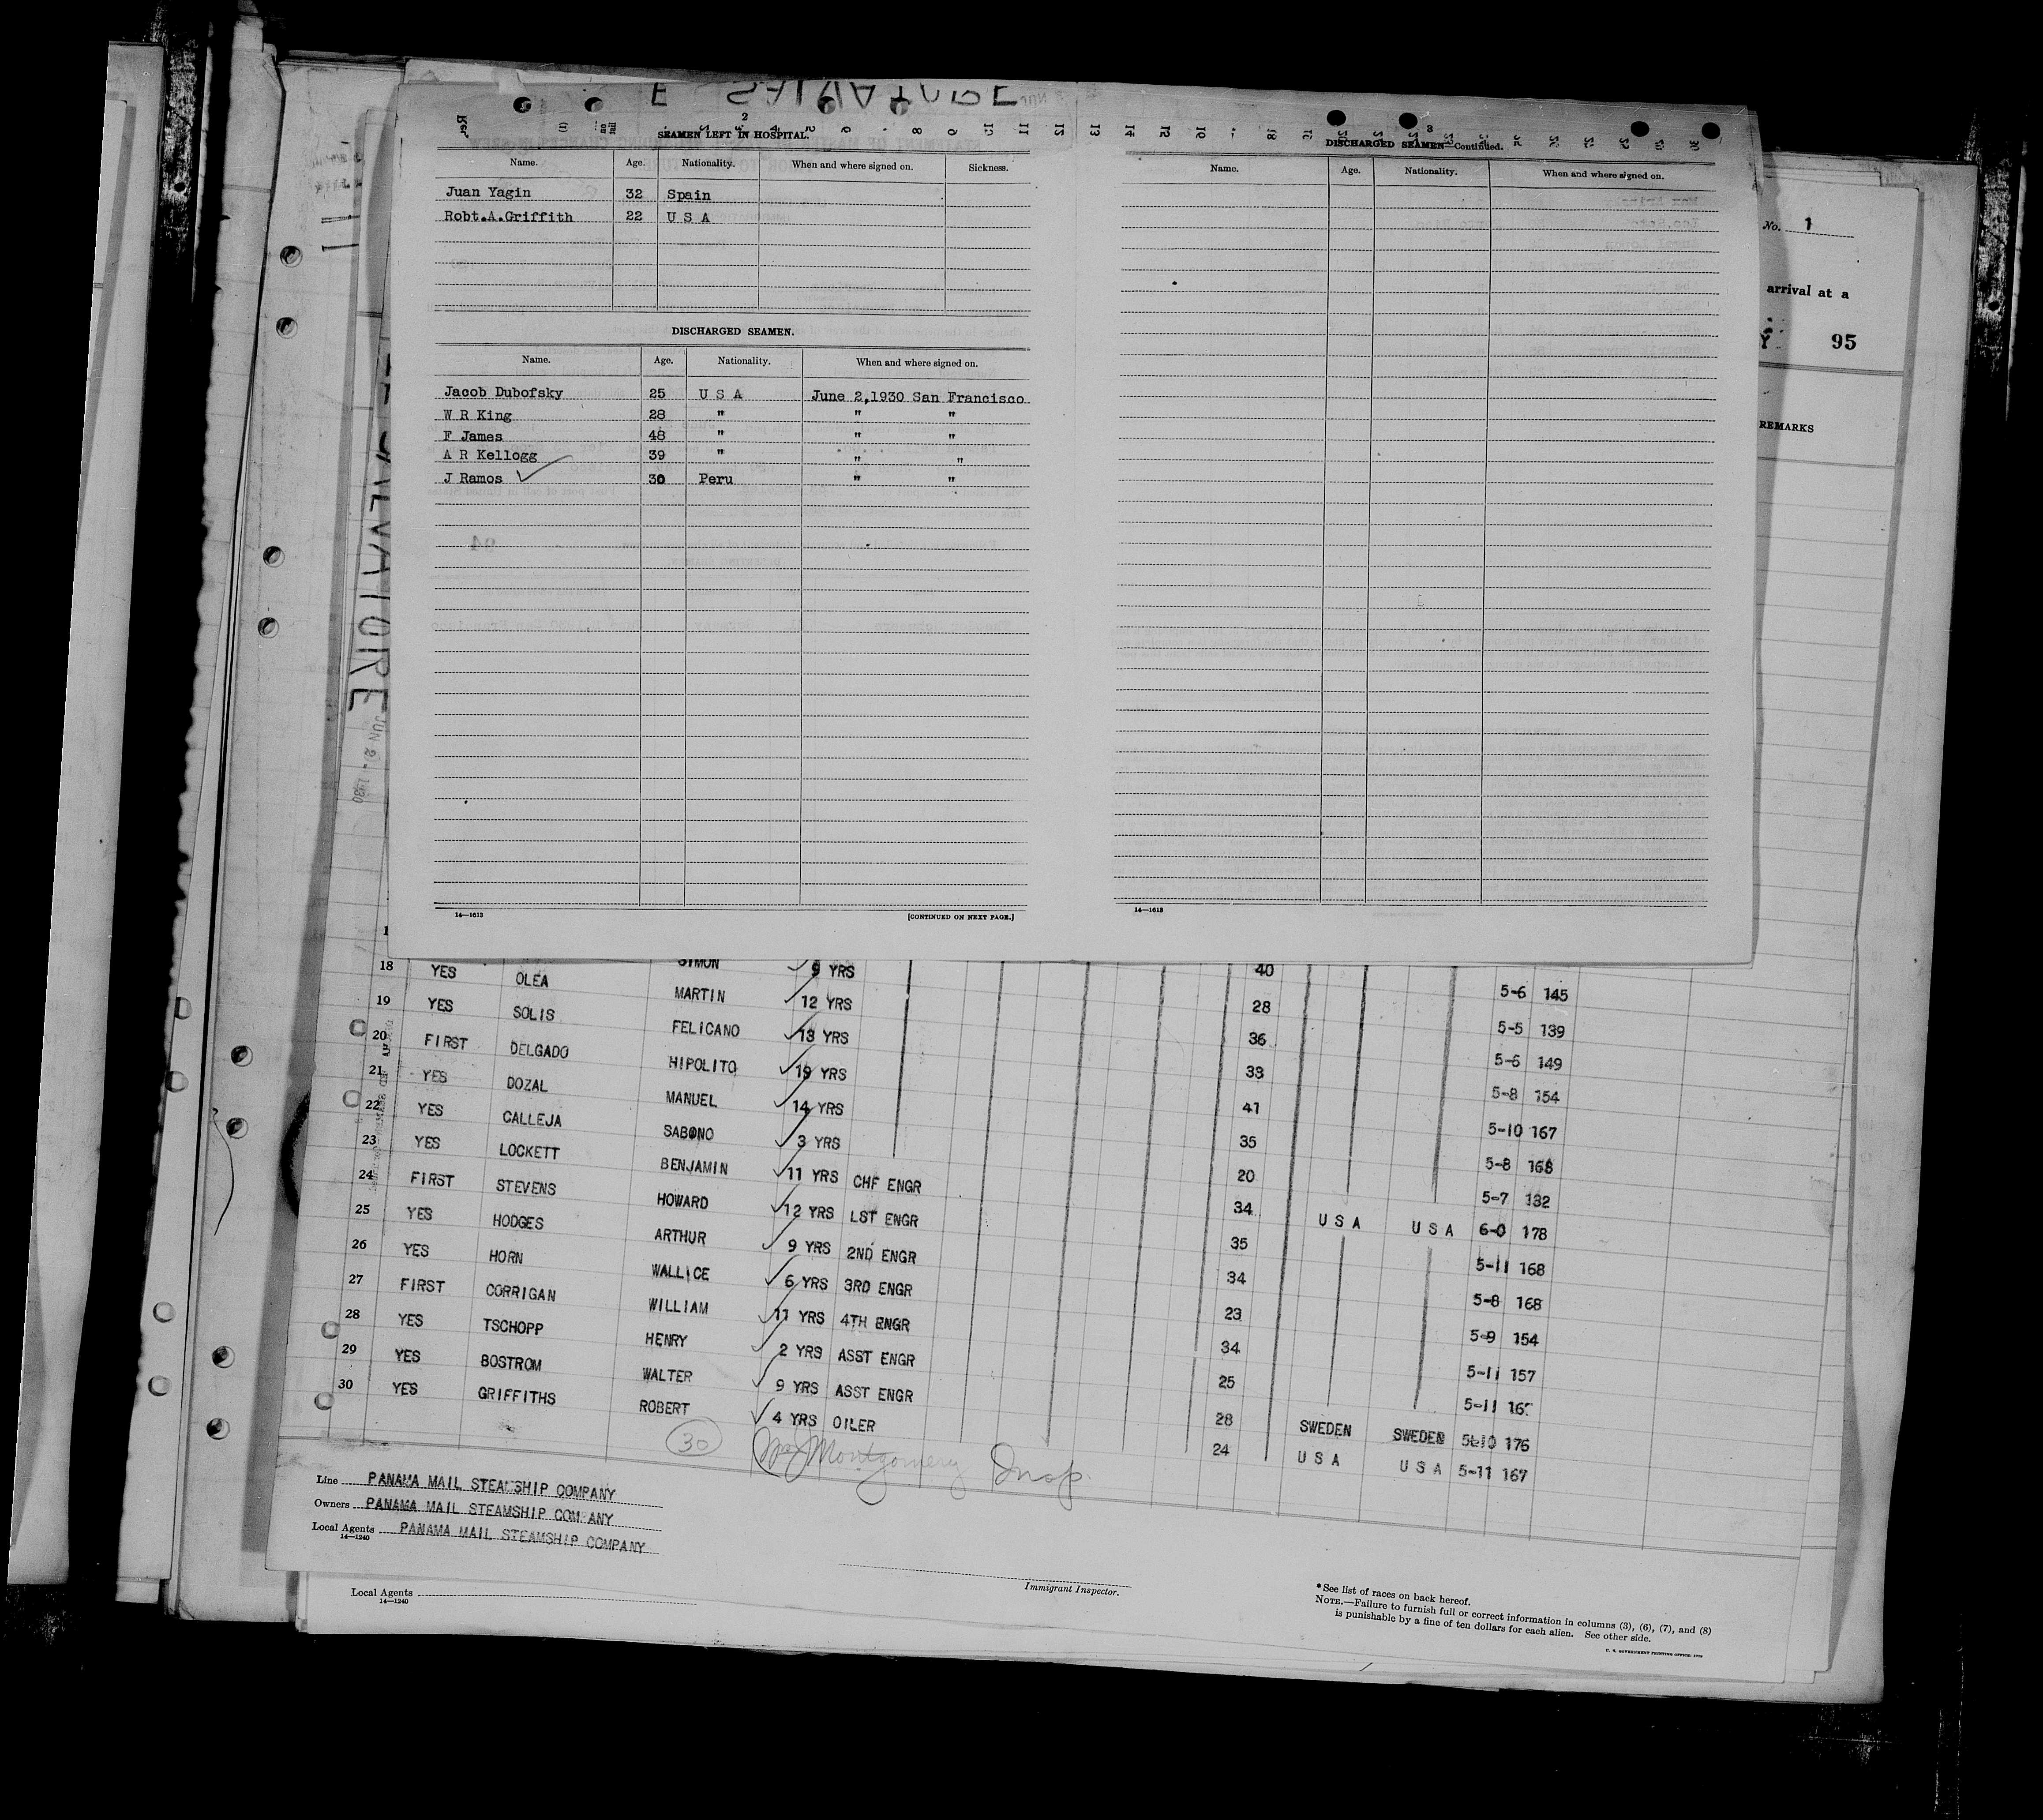 2
SEAMEN LEFT IN HOSPITAL.
Name. Age. Nationality. When and where signed on. Sickness.
Juan Yagin 32 Spain
Robt.A.Griffith 22 U S A
DISCHARGED SEAMEN.
Name. Age. Nationality. When and where signed on.
Jacob Dubofsky 25 U S A June 2,1930 San Francisco
W R King 28 " " "
F James 48 " " "
A R Kellogg 39 " " "
J Ramos 30 Peru " "
14—1613 [CONTINUED ON NEXT PAGE.]
3
DISCHARGED SEAMEN—Continued.
Name. Age. Nationality. When and where signed on.
14—1613
No. 1
arrival at a
95
REMARKS
SALVATORE
JUN 2 - 1930
18 YES OLEA SIMON 9 YRS 40 5-6 145
19 YES SOLIS MARTIN 12 YRS 28 5-5 139
20 FIRST DELGADO FELICANO 13 YRS 36 5-6 149
21 YES DOZAL HIPOLITO 19 YRS 33 5-8 154
22 YES CALLEJA MANUEL 14 YRS 41 5-10 167
23 YES LOCKETT SABONO 3 YRS 35 5-8 168
24 FIRST STEVENS BENJAMIN 11 YRS CHF ENGR 20 5-7 132
25 YES HODGES HOWARD 12 YRS LST ENGR 34 U S A U S A 6-0 178
26 YES HORN ARTHUR 9 YRS 2ND ENGR 35 5-11 168
27 FIRST CORRIGAN WALLICE 6 YRS 3RD ENGR 34 5-8 168
28 YES TSCHOPP WILLIAM 11 YRS 4TH ENGR 23 5-9 154
29 YES BOSTROM HENRY 2 YRS ASST ENGR 34 5-11 157
30 YES GRIFFITHS WALTER 9 YRS ASST ENGR 25 5-11
ROBERT 4 YRS OILER 28 SWEDEN SWEDEN 5-10 176
24 U S A U S A 5-11 167
30 Montgomery Insp.
Line PANAMA MAIL STEAMSHIP COMPANY
Owners PANAMA MAIL STEAMSHIP COMPANY
Local Agents PANAMA MAIL STEAMSHIP COMPANY
14—1240
Local Agents
14—1240
Immigrant Inspector.
*See list of races on back hereof.
NOTE.—Failure to furnish full or correct information in columns (3), (6), (7), and (8)
is punishable by a fine of ten dollars for each alien. See other side.